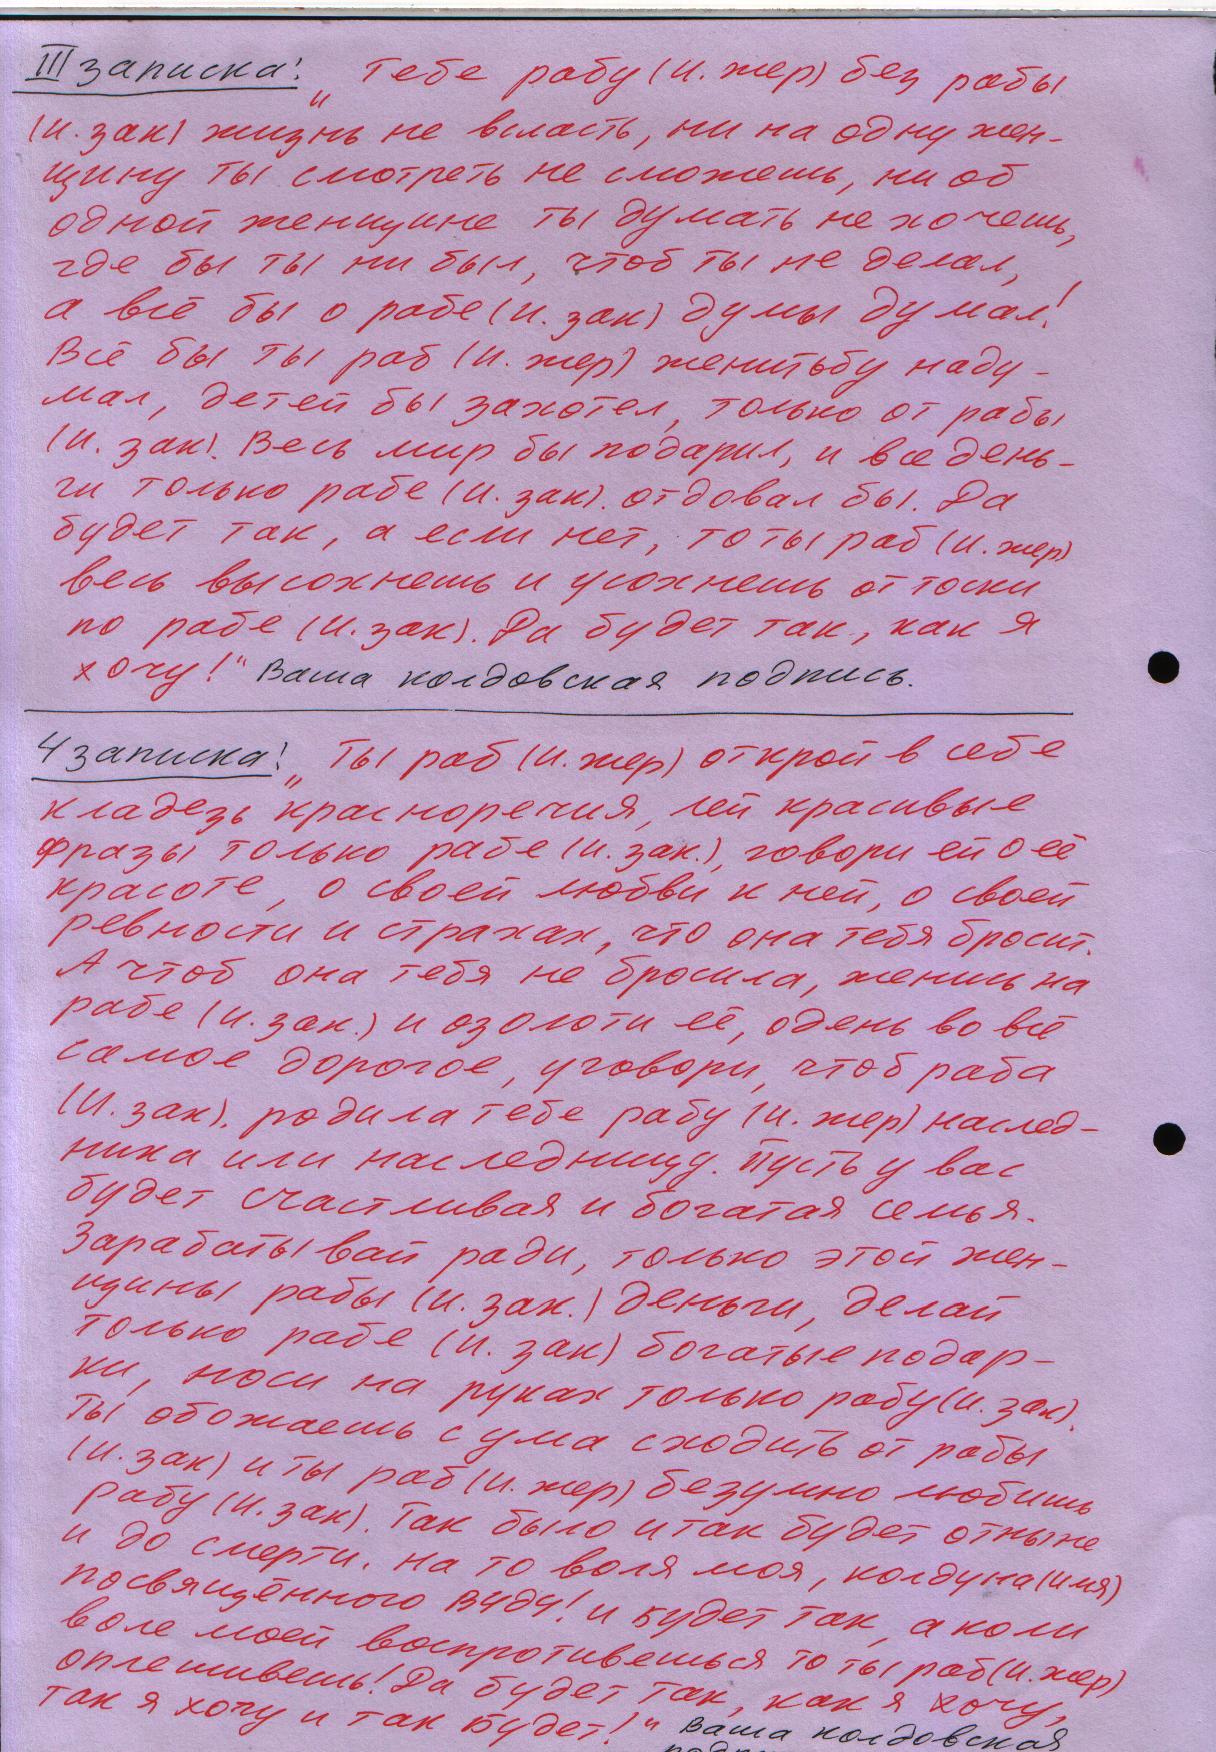 III записка! „Тебе рабу (и. жер) без рабы
(и. зак) жизнь не всласть, ни на одну жен-
щину ты смотреть не сможешь, ни об
одной женщине ты думать не хочешь,
где бы ты ни был, чтоб ты не делал,
а всё бы о рабе (и. зак) думы думал!
Всё бы ты раб (и. жер) женитьбу наду-
мал, детей бы захотел, только от рабы
(и. зак). Весь мир бы подарил, и все день-
ги только рабе (и. зак). отдовал бы. Да
будет так, а если нет, то ты раб (и. жер)
весь высохнешь и усохнешь от тоски
по рабе (и. зак). Да будет так, как я
хочу!“ Ваша колдовская подпись.
4 записка! „Ты раб (и. жер) открой в себе
кладезь красноречия, лей красивые
фразы только рабе (и. зак.), говори ей о её
красоте, о своей любви к ней, о своей
ревности и страхах, что она тебя бросит.
А чтоб она тебя не бросила, женись на
рабе (и. зак.) и озолоти её, одень во всё
самое дорогое, уговори, чтоб раба
(и. зак). родила тебе рабу (и. жер) наслед-
ника или наследницу. Пусть у вас
будет счастливая и богатая семья.
Зарабатывай ради, только этой жен-
щины рабы (и. зак.) деньги, делай
только рабе (и. зак) богатые подар-
ки, носи на руках только рабу (и. зак).
Ты обожаешь с ума сходить от рабы
(и. зак) и ты раб (и. жер) безумно любишь
рабу (и. зак). Так было и так будет отныне
и до смерти. на то воля моя, колдуна (имя)
посвящённого Вуду! и будет так, а коли
воле моей воспротивешься то ты раб (и. жер)
оплешивешь! Да будет так, как я хочу,
так я хочу и так будет!“ Ваша колдовская